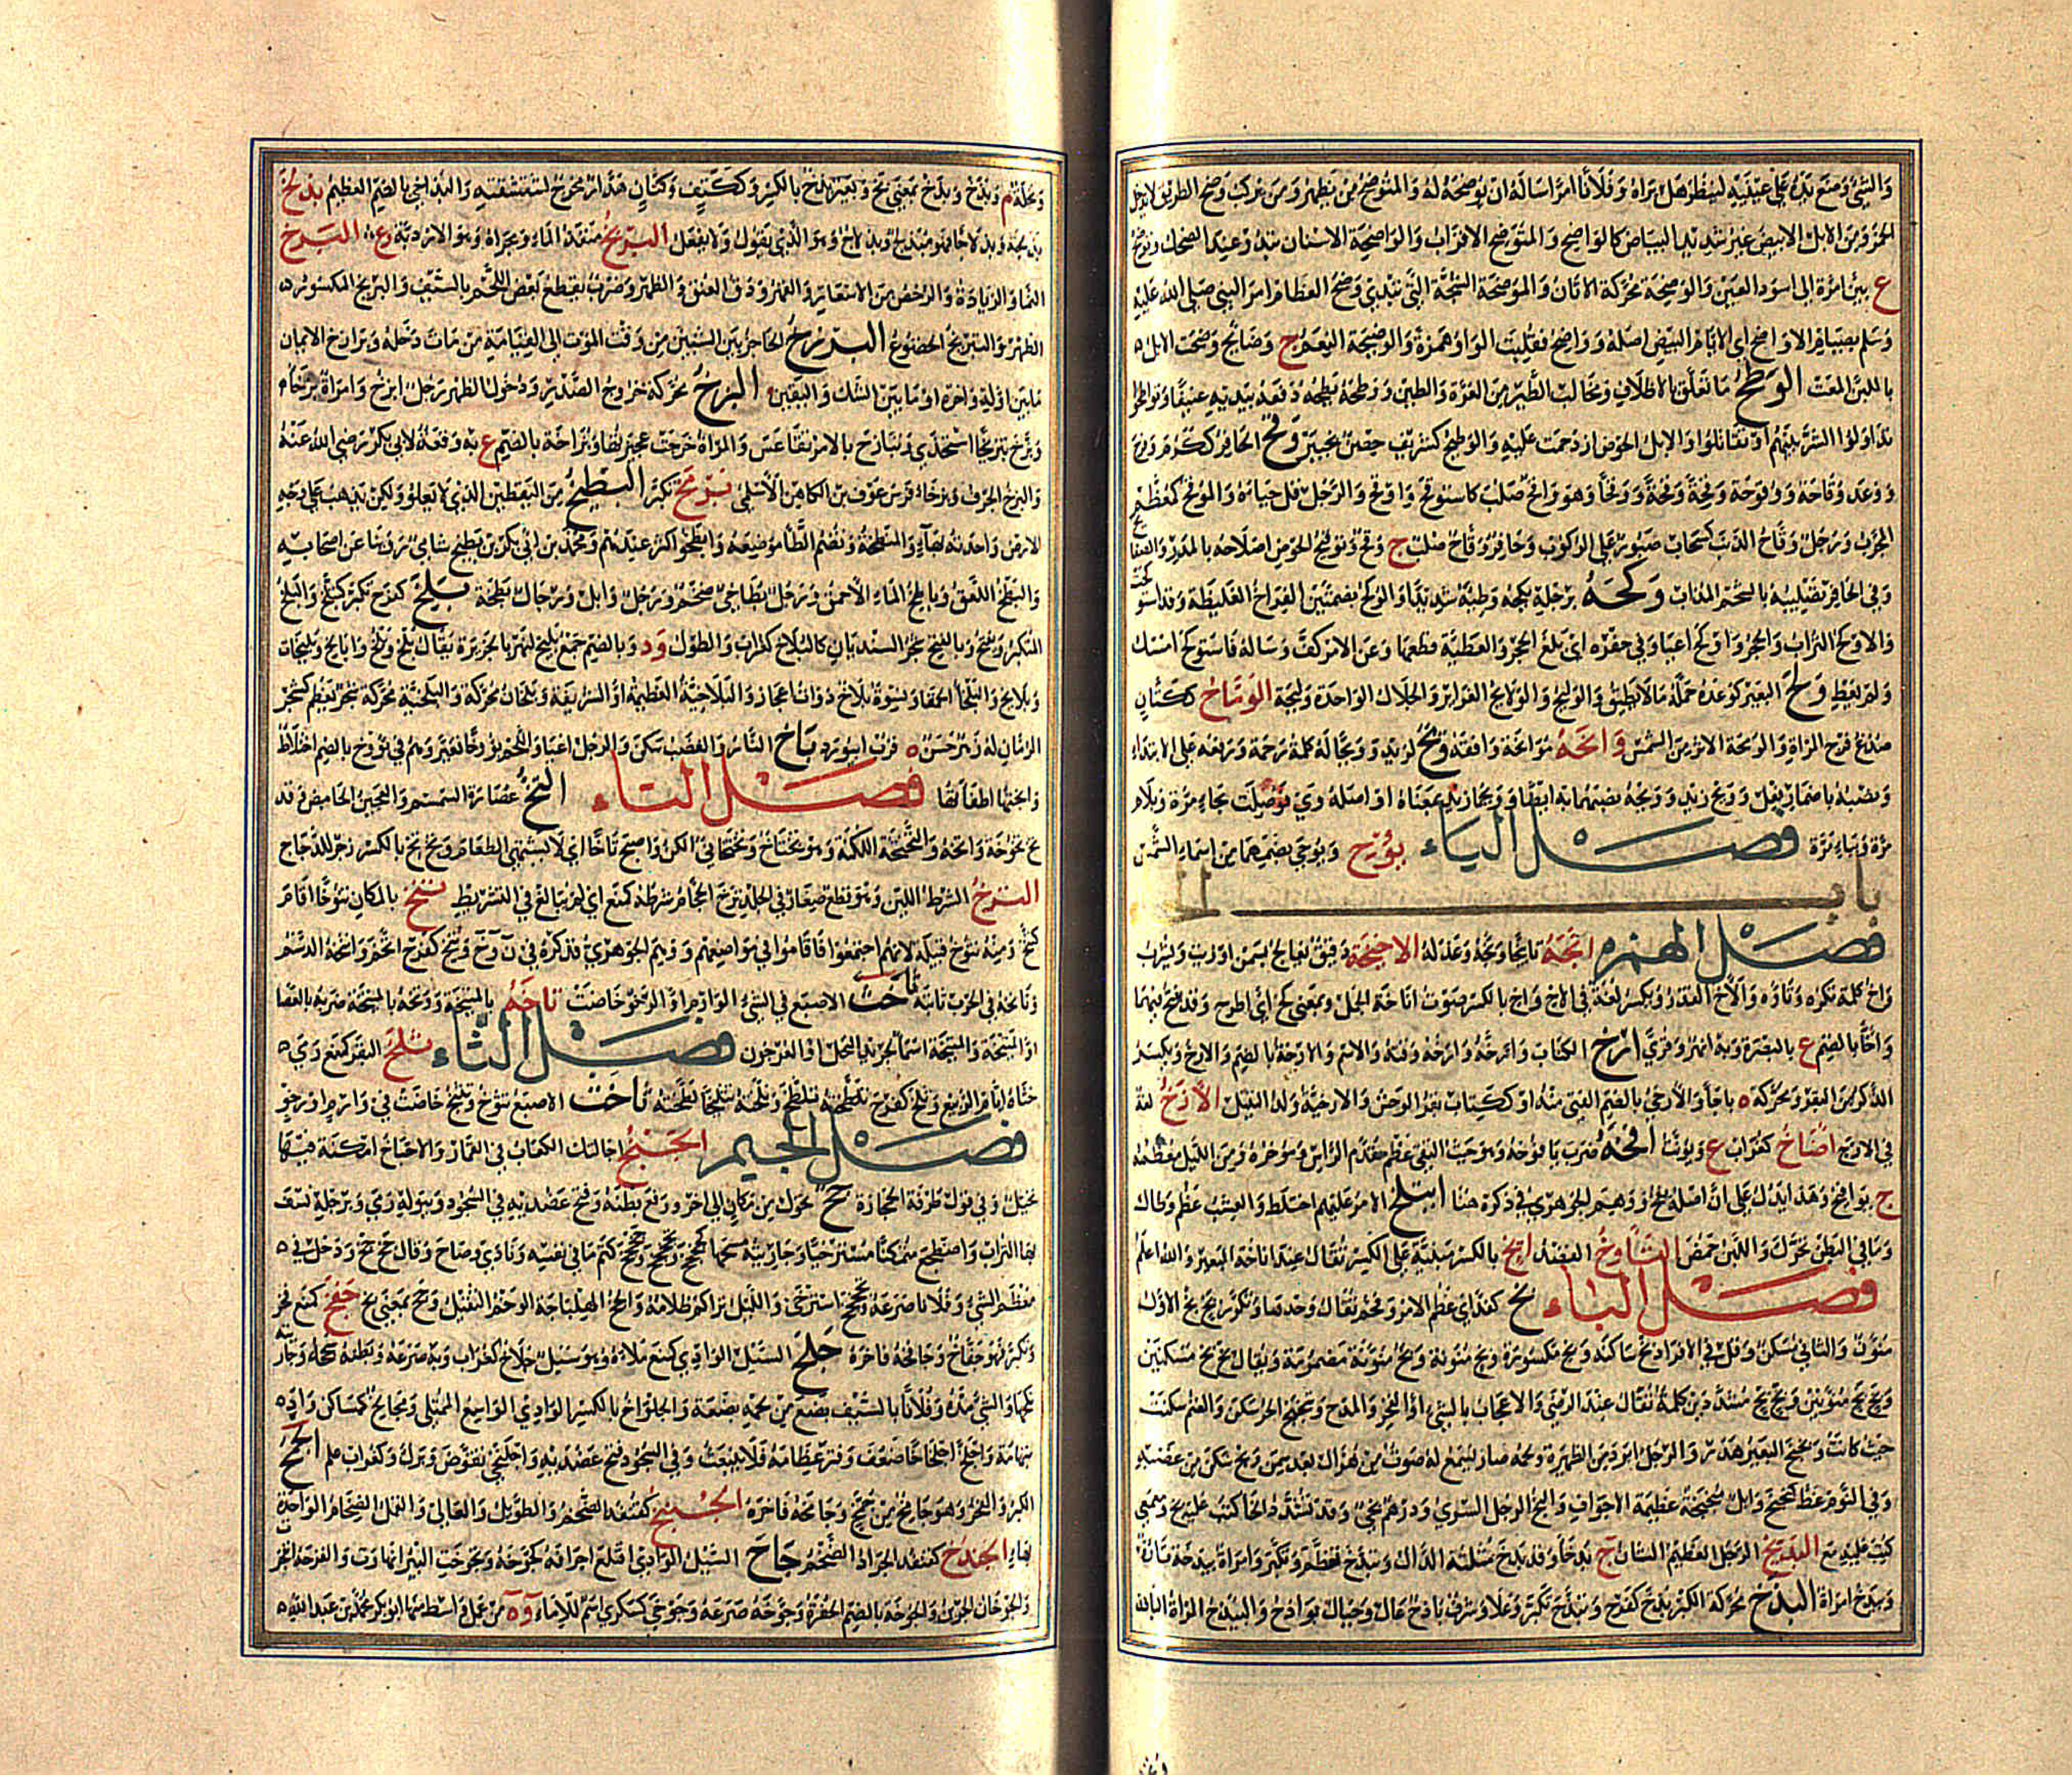 والشئ وضع يده على عينيه لينظر هل يراه وفلانا امرا ساله ان يوضحه له والمتوضح من يظهر ومن يركب وضح الطريق لا يدخل
الخمر ومن الابل الابيض غير شديد البياض كالواضح والمتوضح الاقراب والواضحة الاسنان تبدو عند الضحك وتوضح
ع بين امرة الى اسود العين والوضحة محركة الاتان والموضحة الشجة التي تبدي وضح العظام امر النبي صلى الله عليه
وسلم بصيام الاواضح اي الايام البيض اصله وواضح فقلبت الواو همزة والوضيحة النعم ج وضائح وضحت الابل
باللبن المعت الوطح ما تعلق بالاظلاف ومخالب الطير من العرة والطين ووطحه يطحه دفعه بيديه عنيفا وتواطحوا
تداولوا الشر بينهم او تقاتلوا والابل الحوض ازدحمت عليه والوطيح كشريف حصن بخيبر وقح الحافر ككرم وفرح
ووعد وقاحة ووقوحة وقحة وقحة ووقحا وهو واقح صلب كاستوقح واوقح والرجل قل حياؤه والموقح كمعظم
المجرب ورجل وقاح الذنب كسحاب صبور على الركوب وحافر وقاح صلب ج وقح وتوقيح الحوض اصلاحه بالمدر والصفائح
وفي الحافر تصليبه بالشحم المذاب وكحه برجله يكحه وطئه شديدا والوكح بضمتين الفراخ الغليظة وقد استوكحت
والاوكح التراب والحجر واوكح اعيا وفي حفره اى بلغ الحجر والعطية قطعها وعن الامر كف وساله فاستوكح امسك
ولم يعط ولح البعير كوعده حمله ما لا يطيق والوليح والولائح الغرائر والجلال الواحدة وليحة الوماح ككتان
صدع فرج المراة والومحة الاثر من الشمس وانحه مواخة وافقه ويح لزيد وويحا له كلمة رحمة ورفعه على الابتداء
ونصبه باضمار فعل وويح زيد وويحه نصبهما به ايضا وويحما زيد بمعناه او اصله وي فوصلت بحاء مرة وبلام
مرة وبباء مرة فصل الياء يوح ويوحى بضمهما من اسماء الشمس
باب الخا
فصل الهمزه انخه تانيخا وبخه وعذله الاخيخة دقيق يعالج بسمن او زيت ويشرب
واخ كلمة تكره وتاوه والاخ القذر ويكسر لغة في الاخ واخ بالكسر صوت اناخة الجمل وبمعنى كخ اى اطرح وقد يفتح فيهما
واخا بالضم ع بالبصرة وبه نهر وقرى ارخ الكتاب وارخه وارخه وقته والاسم والارخة بالضم والارخ ويكسر
الذكر من البقر ويحركه باخا والارخى بالضم الفتي منه او ككتاب بقر الوحش والارخية ولد الثيتل الازخ لغة
في الارخ اضاخ كغراب ع ويؤنث افخه ضرب يافوخه وهو حيث التقى عظم مقدم الراس ومؤخره ومن الليل معظمه
ج يوافيخ وهذا يدل على ان اصله يفخ ووهم الجوهري في ذكره هنا ائتلخ الامر عليهم اختلط والعشب عظم وطال
وما في البطن تحرك واللبن حمض التاويخ القصد ايخ بالكسر مبنية على الكسر تقال عند اناخة البعير والله اعلم
فصل الباء بخ كقد اي عظم الامر وفخم تقال وحدها وتكرر بخ بخ الاول
منون والثاني مسكن وقل في الافراد بخ ساكنة وبخ مكسورة وبخ منونة وبخ منونة مضمومة ويقال بخ بخ مسكنين
وبخ بخ منونين وبخ بخ مشددين كلمة تقال عند الرضى والاعجاب بالشئ او الفخر والمدح وتبخبخ الحر سكن والغنم سكنت
حيث كانت وبخبخ البعير هدر والرجل ابرد من الظهيرة ولحمه صار يسمع له صوت من هزال بعد سمن وبخ سكن من غضبه
وفي النوم غط كبخبخ وابل مبخبخة عظيمة الاجواف والبخ الرجل السري ودرهم بخي وقد تشدد الخا كتب عليه بخ ومعمعي
كتب عليه مع البديخ الرجل العظيم الشان ج بدخا وقد بدخ مثلثة الدال وتبدخ تعظم وتكبر وامراة بيدخة تارة
وبيدخ امراة البذخ محركة الكبر بذخ كفرح وتبذخ تكبر وعلا وشرف باذخ عال وجبال بواذخ والبيذخ المراة البادن
ونخلة م وبذخ وبذخ بمعنى بخ وبعير بذخ بالكسر وككتف وكتان هدار مخرج لشقشقته والبذاخي بالضم العظيم بذلخ
بذلخة وبذلاخا فهو مبذلخ وبذلاخ وهو الذي يقول ولا يفعل البربخ منفذ الماء ومجراه وهو الاردبة وع البرخ
النما والزيادة والرخص من الاسعار والقهر ودق العنق والظهر وضرب يقطع بعض اللحم بالسيف والبريخ المكسور
الظهر والتبريخ الخضوع البرزخ الحاجز بين الشيئين من وقت الموت الى القيامة من مات دخله وبرازخ الايمان
ما بين اوله واخره او ما بين الشك واليقين البزخ محركة خروج الصدر ودخول الظهر رجل ابزخ وامراة بزخا
وبزخ تبزيخا استخذى وتبازخ بالامر تقاعس والمراة خرجت عجيزتها وبزاخة بالضم ع به وقعة لابي بكر رضى الله عنه
والبزخ الجرف وبزخاء فرس عوف بن الكاهن الاسلمى بزمخ تكبر البطيخ من اليقطين الذي لا يعلو ولكن يذهب على وجه
الارض واحدته بهاء والمبطخة وتضم الطاء موضعه وابطخوا كثر عندهم ومحمد بن ابي بكر بن بطيخ شامي مر بنا عن اصحابه
والبطخ اللعق وباطخ الماء الاحمق ورجل بطاخي ضخم ورجل وابل ورجال بطخة بلخ كفرح تكبر كتبلخ والبلخ
التكبر ويفتح وبالفتح شجر السنديان كالبلاخ كغراب والطول ود وبالضم جمع بليخ لنهر بالجزيرة يقال بلخ وبلخ وابالخ وبليخات
وبلايخ والبلخا الحمقا ونسوة بلاخ ذوات اعجاز والبلاخية العظيمة او الشريفة وبلخان محركة والبلخية محركة شجر يعظم كشجر
الرمان له زهر حسن قرب ابيورد باخ النار والغضب سكن والرجل اعيا واللحم بؤوخا تغير وهم في بوخ بالضم اختلاط
وابختها اطفاتها فصل التاء التخ عصارة السمسم والعجين الحامض وقد
تخ تخوخة واتخه والتختخة اللكنة وهو تختاخ وتختخاني الكن واصبح تاخا اي لا يشتهي الطعام وتخ تخ بالكسر زجر للدجاج
الترخ الشرط اللين وهو قطع صغار في الجلد ترخ الحجام شرطه كمنع اي لم يبالغ في التشريط تنخ بالمكان تنوخا اقام
كتنخ ومنه تنوخ قبيلة لانهم اجتمعوا فاقاموا في مواضعهم ووهم الجوهري فذكره في ن و خ وتنخ كفرح اتخم وانتخه الدسم
وتانخه في الحرب ثابته تاخت الاصبع في الشئ الوارم او الرخو خاضت تاخه بالمتيخة ووتخه بالميتخة ضربه بالعصا
او المتيخة والمتيخة اسماء لجريد النخل او العرجون فصل الثاء ثلخ البقر كمنع رمى
خثاه ايام الربيع وثلخ كفرح تلطخ وثلخته تثليخا لطخته ثاخت الاصبع تثوخ وتثيخ خاضت في وارم او رخو
فصل الجيم الجبخ اجالتك الكعاب في القمار والاجباخ امكنة فيها
نخيل وفي قول طرفة الحجارة جخ تحول من مكان الى اخر ورفع بطنه وفتح عضديه في السجود وببوله رمى وبرجله نسف
بها التراب واضطجع متمكنا مسترخيا وجاريته مسحها كجخجخ وتجخجخ وجخجخ كتم ما في نفسه ونادى وصاح وقال جخ جخ ودخل في
معظم الشئ وفلانا صرعه وتجخجخ استرخى والليل تراكم ظلامه والجخ الهلباجة الوخم الثقيل وجخ بمعنى بخ جفخ كمنع فخر
وتكبر فهو جفاخ وجافخه فاخره جلخ السيل الوادي كمنع ملاه وهو سيل جلاخ كغراب وبه صرعه وبطنه سحجه وجاريته
نكحها والشئ مده وفلانا بالسيف بضع من لحمه بضعة والجلواخ بالكسر الوادي الواسع الممتلي ومجالخ كمساكن واد
بتهامة واجلخ اجلخاخا ضعف وفتر عظامه فلا ينبعث وفي السجود فتح عضديه واجلنخى تقوض وبرك وكغراب علم الجمخ
الكبر والفخر وهو جامخ من جمخ وجامخه فاخره الجنبخ كقنفذ الضخم والطويل والعالي والقمل الضخام الواحدة
بهاء الجندخ كقنفذ الجراد الضخم جاخ السيل الوادي اقتلع اجرافه كجوخه وتجوخت البئر انهارت والقرحة انفجرت
والجوخان الجرين والجوخة بالضم الحفرة وجوخه صرعه وجوخى كسكرى اسم للاماء وة من عمل واسط منها ابو بكر محمد بن عبد الله